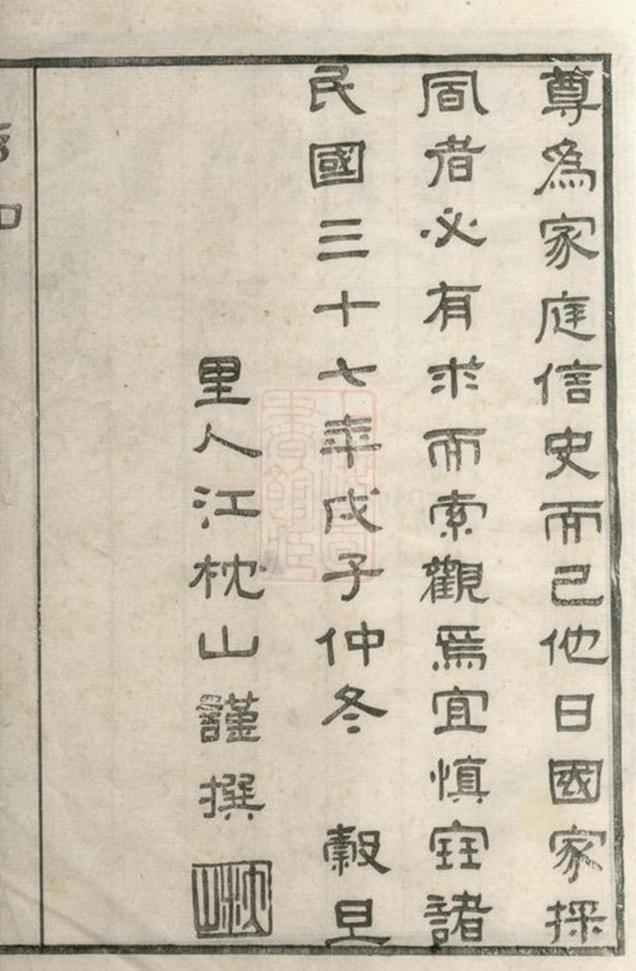 尊為家庭信史而已他日國家採
風者必有求而索觀焉宜慎宝諸
民國三十七年戊子仲冬　穀旦
里人江枕山謹撰
枕山